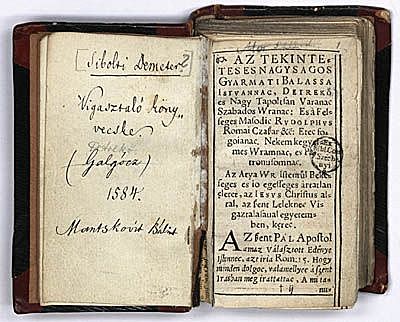 Sibolti Demeter
Vigasztaló köny-
vecske.
(Galgócz)
1584.
Mantskovit Bálint
AZ TEKINTE-
TES ES NAGYSAGOS
GYARMATI BALASSA
ISTVANNAC, DETREKŐ
es Nagy Tapolſan Varanac
Szabados Vranac: Es à Fel-
ſeges Maſodic RVDOLPHVS
Romai Czaſar &c: Etec fo-
goianac. Nekem kegyel-
mes Wramnac, es
tronuſomnac.
Az Atya WR Iſtentűl Bekeſ-
ſeges es io egeſſeges artatlan
eletet, az IESVS Chriſtus al-
tal, az ſent Leleknec Vi-
gaztalaſaual egyetem-
ben, kerec.
AZ ſent PAL Apoſtol
amaz választott Edénye
Iſtennec, azt iria Rom: 15. Hogy
minden dolgoc, valamellyec à ſzent
Irasban meg irattattac, A mi ta-
ij
nu-